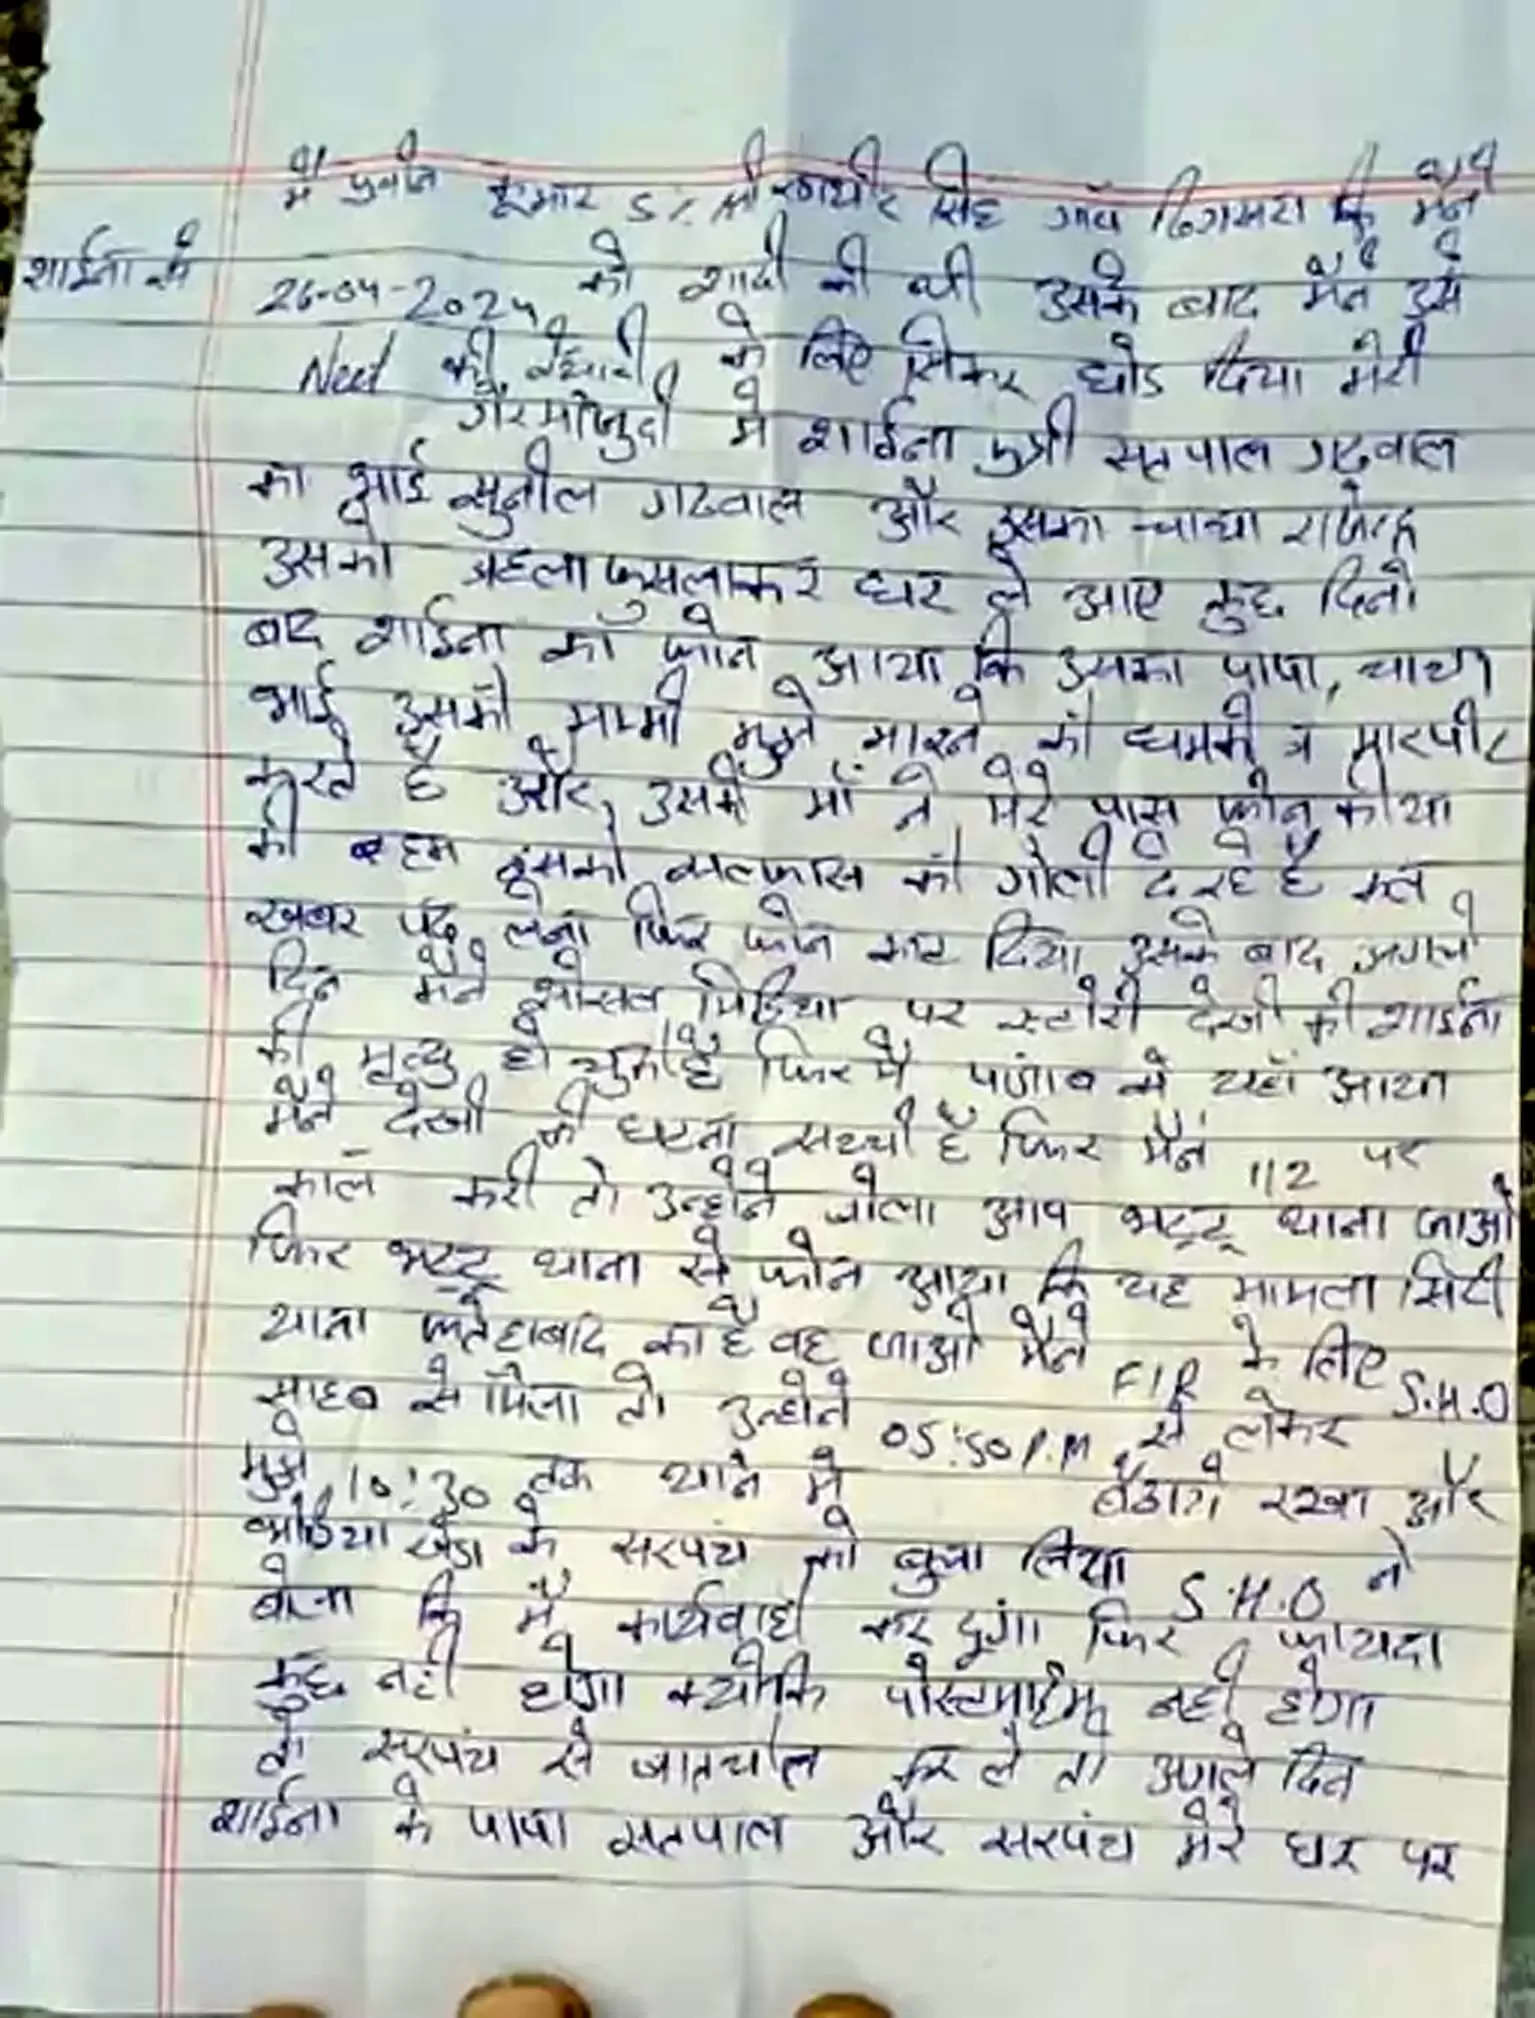 मैं कुमार S/. श्री रणधीर सिंह गाँव कि मैंने
शाईना से 26-04-2024 को शादी की थी उसके बाद मैंने उसे
Neet की तैयारी के लिए सिकर छोड दिया मेरी
गैरमौजुदी मे शाईना पुत्री सतपाल गढवाल
का भाई सुनील गढवाल और इसका चाचा राजेन्द्र
उसको बहला फुसलाकर घर ले आए कुछ दिनो
बाद शाईना का फोन आया कि उसका पापा, चाचा
भाई उसकी मम्मी मुझे मारने की धमकी व मारपीट
करते है और उसकी माँ ने मेरे पास फोन कीया
की हम इसको सल्फास की गोली दे रहे है कल
खबर पढ लेना फिर फोन काट दिया उसके बाद अगले
दिन मैंने शोसल मिडिया पर स्टोरी देखी की शाईना
की मृत्यु हो चुकी है फिर मै पंजाब से यहाँ आया
मैंने देखी की घटना सच्ची है फिर मैंने 112 पर
काल करी तो उन्होने बोला आप भट्टू थाना जाओ
फिर भट्टू थाना से फोन आया कि यह मामला सिटी
थाना फतेहाबाद का है वह जाओ मैंने FIR के लिए S.H.O
साहब से मिला तो उन्होने 05:50 P.M से लेकर
मुझे 10:30 तक थाने मे बैठाये रखा और
खेडा के सरपंच को बुला लिया S.H.O ने
बोला कि मैं कार्यवाही कर दूंगा फिर फायदा
कुछ नही होगा क्योकि पोस्टमार्टम नही होगा
तो सरपंच से बातचीत कर ले तो अगले दिन
शाईना के पापा सतपाल और सरपंच मेरे घर पर